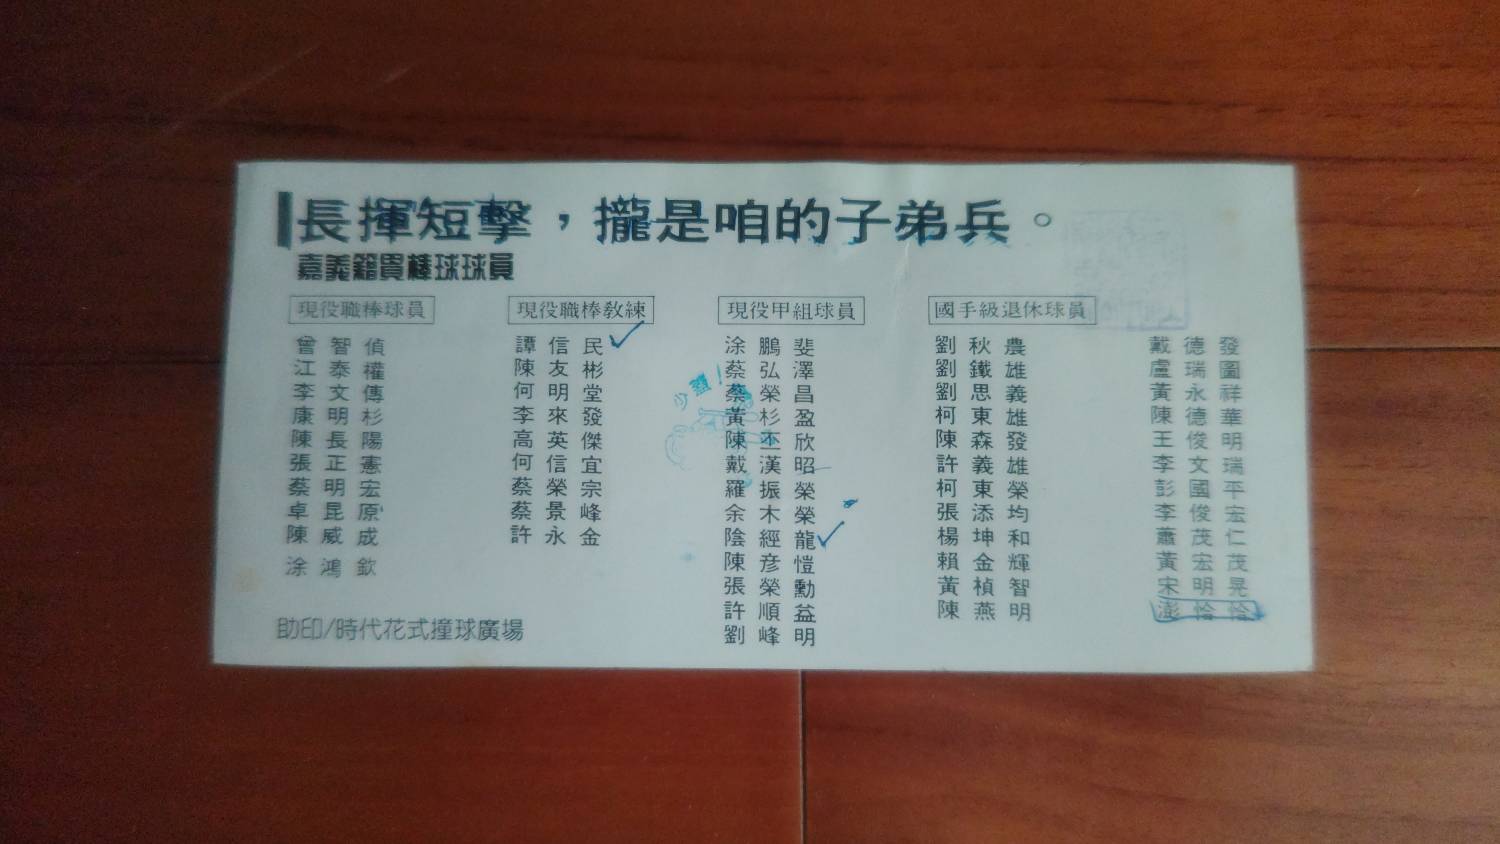 長揮短擊，攏是咱的子弟兵。
嘉義籍貫棒球球員
現役職棒球員
曾智偵
江泰權
李文傳
康明杉
陳長陽
張正憲
蔡明宏
卓昆原
陳威成
涂鴻欽
現役職棒教練
譚信民
陳友彬
何明堂
李來發
高英傑
何信宜
蔡榮宗
蔡景峰
許永金
現役甲組球員
涂鵬斐
蔡弘澤
蔡榮昌
黃杉盈
陳丕欣
戴漢昭
羅振榮
余木榮
陰經龍
陳彦愷
張榮勳
許順益
劉峰明
國手級退休球員
劉秋農
劉鐵雄
劉思義
柯東雄
陳森發
許義雄
柯東榮
張添均
楊坤和
賴金輝
黃楨智
陳燕明
戴德發
盧瑞圖
黃永祥
陳德華
王俊明
李文瑞
彭國平
李俊宏
蕭茂仁
黃宏茂
宋明晃
澎恰恰
助印/時代花式撞球廣場